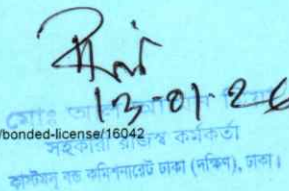 13-01-26
/bonded-license/16042
সহকারী রাজস্ব কর্মকর্তা
কাস্টমস্ বন্ড কমিশনারেট ঢাকা (দক্ষিণ), ঢাকা।